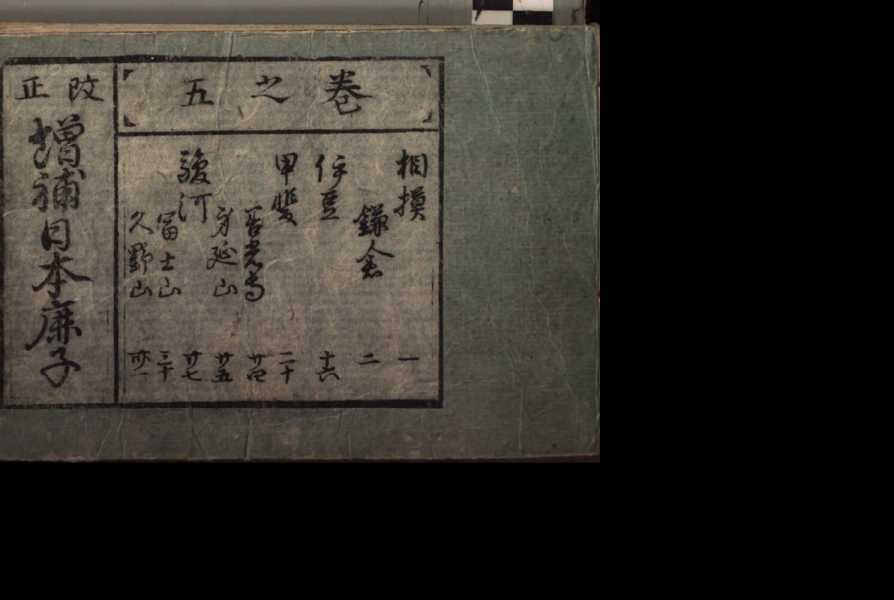 巻之五
相摸 一
鎌倉 二
伊豆 十六
甲斐 二十
善光寺 廿四
身延山 廿五
駿河 廿七
冨士山 三十
久野山 卅一
改正
増補日本鹿子